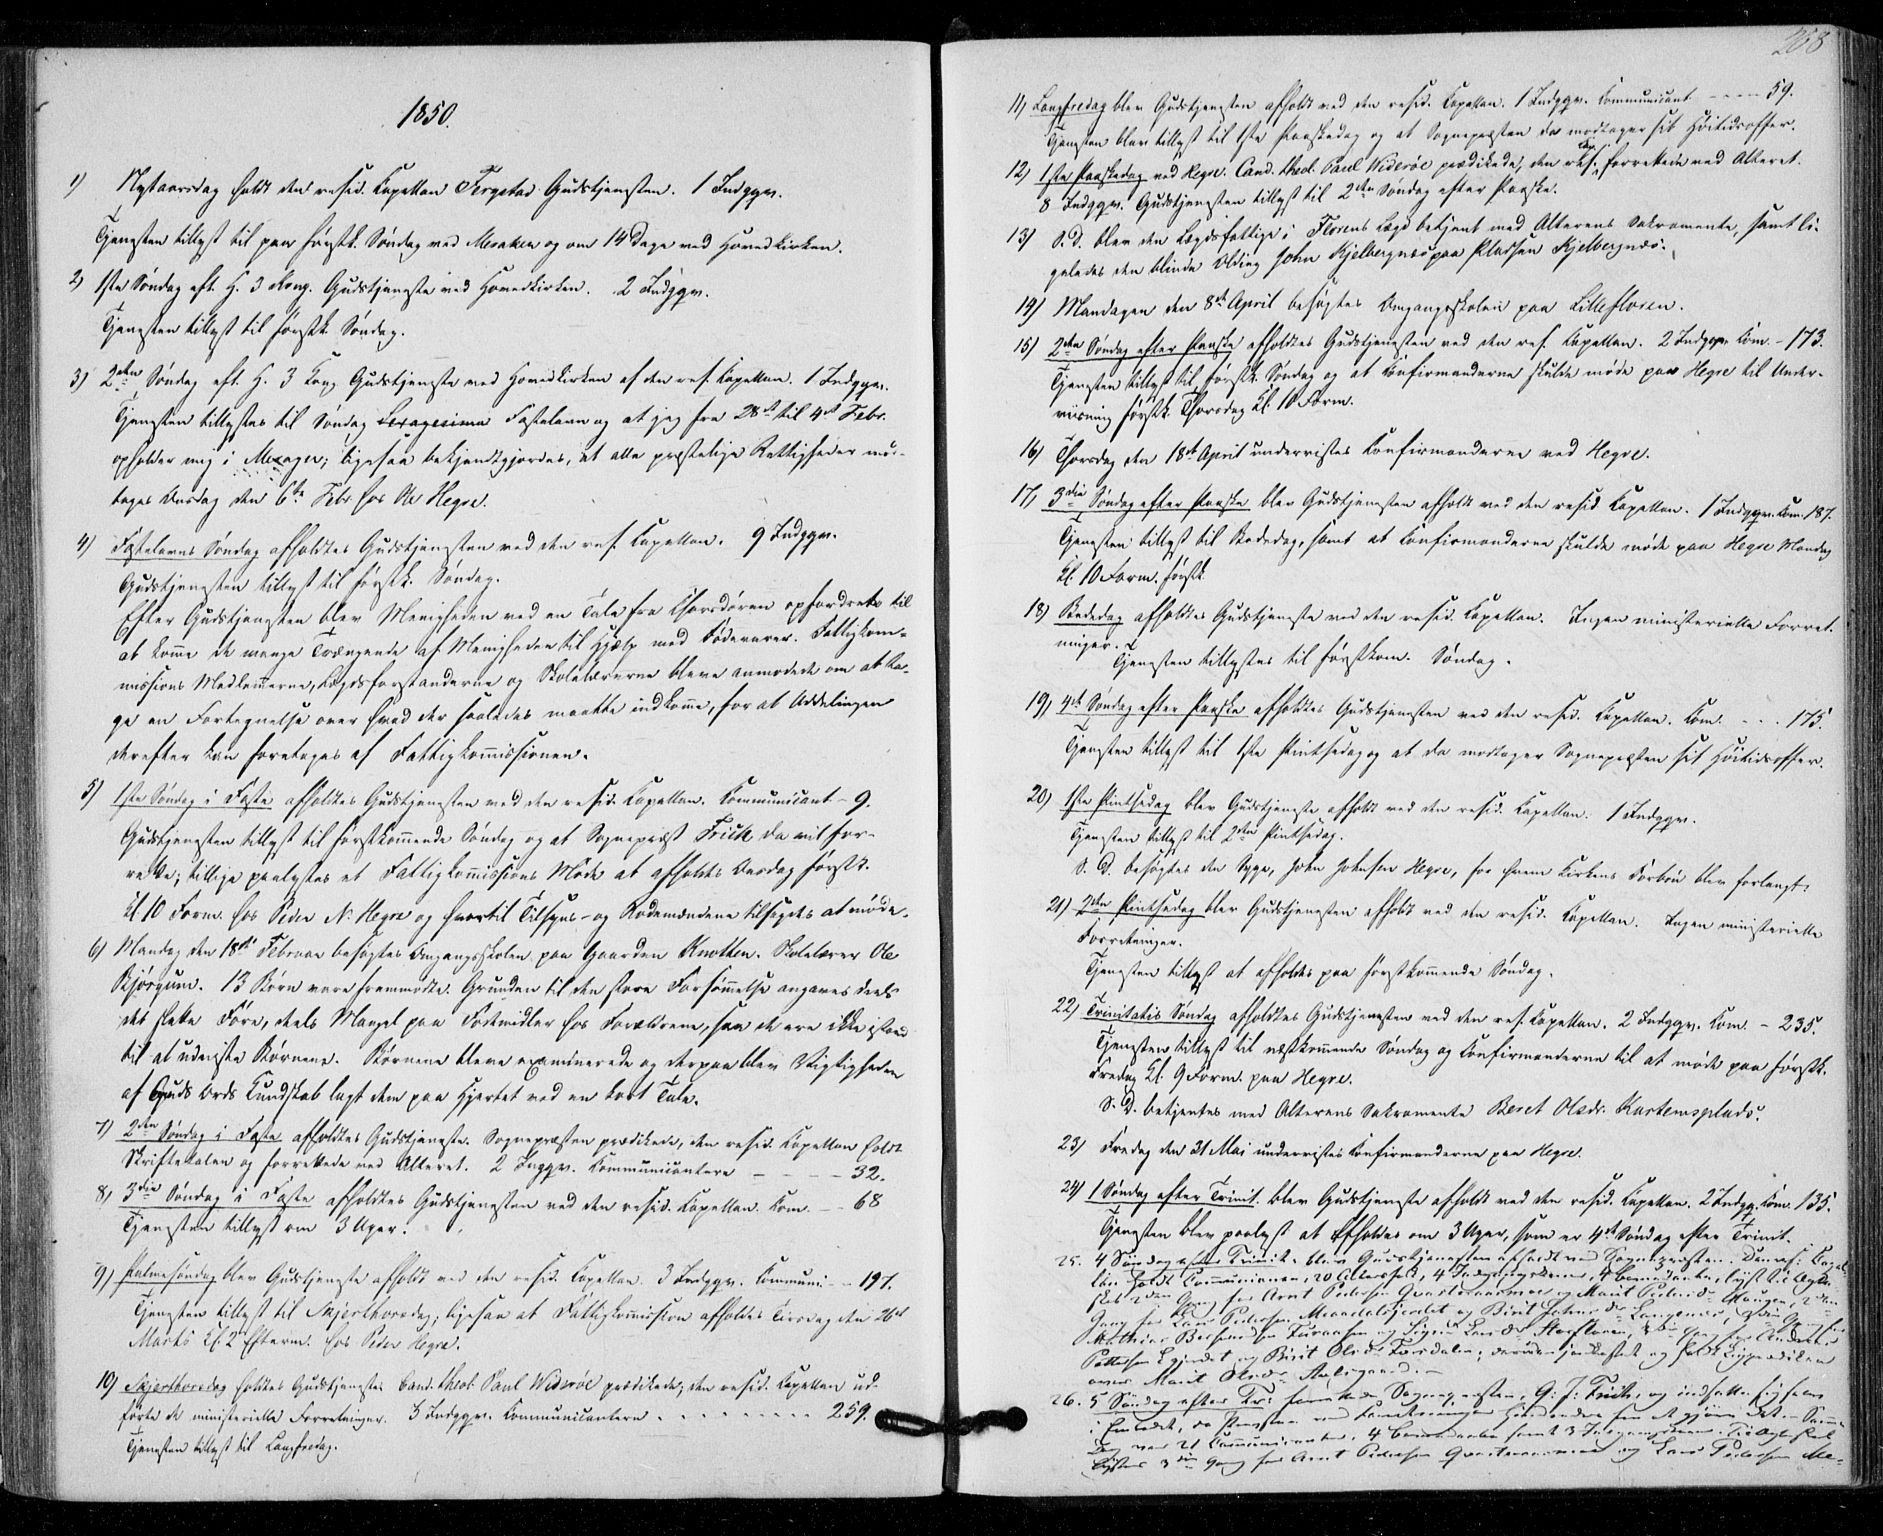 1850.
1) Nytaarsdag holdt den resid. Kapellan Fergstad Gudstjenesten. 1 Indggv.
Tjenesten tillyst til paa førstk. Søndag ved Meraker og om 14 Dage ved Hovedkirken.
2) 1ste Søndag eft. H. 3 Kong. Gudstjeneste ved Hovedkirken. 2 Indggv.
Tjenesten tillyst til førstk. Søndag.
3) 2den Søndag eft. H. 3 Kong Gudstjeneste ved Hovedkirken af den res. Kapellan. 1 Indggv.
Tjenesten tillystes til Søndag Sexagesima Fastelavn og at jeg fra 28de til 4de Febr.
opholder mig i Merager; ligesaa bekjendtgjordes, at alle præstelige Rettigheder mod-
tages Onsdag den 6te Febr. hos Ole Hegre.
4) Fastelavns Søndag afholdtes Gudstjenesten ved den res. Kapellan. 9 Indggv.
Gudstjenesten tillyst til førstk. Søndag.
Efter Gudstjenesten blev Menigheden ved en Tale fra Chorsdøren opfordret til
at komme de mange Trængende af Menigheden til Hjelp med Fødevarer. Fattigkom-
missions Medlemmerne, Lægdsforstanderne og Skolelærerne bleve anmodede om at ta-
ge en Fortegnelse over hvad der saaledes maatte indkomme, for at Uddelingen
derefter kan foretages af Fattigkommissionen.
5) 1ste Søndag i Faste afholdtes Gudstjenesten ved den resid. Kapellan. Communicant - 9.
Gudstjenesten tillyst til førstkommende Søndag og at Sognepræst Frich da vil for-
rette; tillige paalystes et Fattigkommissions Møde at afholdes Onsdag førstk.
Kl. 10 Form. hos Peder N. Hegre og hvortil Tilsyns- og Rodemændene tilsagdes at møde.
6) Mandag den 18de Februar besøgtes Omgangsskolen paa Gaarden Knotten. Skolelærer Ole
Bjørgum. 13 Børn vare fremmødte. Grunden til den store Forsømmelse angaves deels
det slette Føre, deels Mangel paa Fødemidler hos Forældrene, saa de ere ikke istand
til at udniste Børnene. Børnene bleve examinerede og derpaa blev Vigtigheden
af Guds Ords Kundskab lagt dem paa Hjertet ved en kort Tale.
7) 2den Søndag i Faste afholdtes Gudstjeneste. Sognepræsten prædikede, den resid. Kapellan holdt
Skriftetalen og forrettede ved Alteret. 2 Inggv. Communicantere - - - 32.
8) 3die Søndag i Faste afholdtes Gudstjenesten ved den resid. Kapellan. Kom. - - 68
Tjenesten tillyst om 3 Uger.
9) Palmesøndag blev Gudstjeneste afholdt ved den resid. Kapellan. 3 Indggv. Communi. - 197.
Tjenesten tillyst til Skjerthorsdag; ligesaa at Fattigkommission afholdes Tirsdag den 26de
Marts Kl. 2 Efterm. hos Peder Hegre.
10) Skjerthorsdag holdtes Gudstjeneste. Cand. theol. Paul Widerøe prædikede; den resid. Kapellan ud-
førte de ministerielle Forretninger. 3 Indggv. Communicantere . . . . . . 259.
Tjenesten tillyst til Langfredag.
268
11) Langfredag blev Gudstjenesten afholdt ved den resid. Kapellan. 1 Indggv. Communicant - - - 59.
Tjenesten blev tillyst til 1ste Paaskedag og at Sognepræsten da modtager sit Høitidsoffer.
12) 1ste Paaskedag ved Hegre. Cand. theol. Paul Widerøe prædikede, den res. Cap. forrettede ved Alteret.
8 Indggv. Gudstjenesten tillyst til 2den Søndag efter Paaske.
13) S. D. blev den Lægdsfattige i Florens Lægd betjent med Alterens Sakramente, samt li-
geledes den blinde Olding John Kjelbergnæs paa Pladsen Kjelbergnæs.
14) Mandagen den 8de April besøgtes Omgangsskolen paa Lillefloren.
15) 2den Søndag efter Paaske afholdtes Gudstjenesten ved den res. Kapellan. 2 Indggv. Kom. - 173.
Tjenesten tillyst til førstk. Søndag og at Confirmanderne skulde møde paa Hegre til Under-
viisning førstk. Thorsdag Kl. 10 Form.
16) Thorsdag den 18de April undervistes Confirmanderne ved Hegre.
17) 3die Søndag efter Paaske blev Gudstjenesten afholdt ved den resid Kapellan. 1 Indggv. Kom. 187.
Tjenesten tillyst til Bededag, samt at Confirmanderne skulde møde paa Hegre Mandag
Kl. 10 Form. førstk.
18) Bededag afholdtes Gudstjeneste ved den resid. Kapellan. Ingen ministerielle Forret-
ninger.
Tjenesten tillystes til førstkom. Søndag.
19) 4de Søndag efter Paaske afholdtes Gudstjenesten ved den resid. Kapellan. Kom. - . . 175.
Tjenesten tillyst til 1ste Pintsedag og at da modtager Sognepræsten sit Høitidsoffer.
20) 1ste Pintsedag blev Gudstjeneste afholdt ved den resid. Kapellan. 1 Indggv.
Tjenesten tillyst til 2den Pintsedag.
S. D. besøgtes den Syge, John Johnsen Hegre, for hvem Kirkens Forbøn blev forlangt.
21) 2den Pintsedag blev Gudstjenesten afholdt ved den resid. Kapellan. Ingen ministerielle
Forretninger.
Tjenesten tillyst at afholdes paa førstkommende Søndag.
22) Trinitatis Søndag afholdtes Gudstjenesten ved den res. Kapellan. 2 Indggv. Kom. - 235.
Tjenesten tillyst til næstkommende Søndag og Confirmanderne til at møde paa førstk.
Fredag Kl. 9 Form. paa Hegre.
S. D. betjentes med Alterens Sakramente Beret Olsdr. Kartemsplads.
23) Fredag den 31 Mai undervistes Confirmanderne paa Hegre.
24) 1 Søndag efter Trinit. blev Gudstjeneste afholdt ved den resid. Kapellan. 2 Indgg. Kom. 135.
Tjenesten blev paalyst at afholdes om 3 Uger, som er 4de Søndag efter Trinit.
25. 4 Søndag efter Trinit. blev Gudstjenesten afholdt ved Sognepræsten. Den res: Capel-
lan holdt Communionen, 20 Altersf., 4 Indgangskoner, lyst til Ægte-
skab 2den Gang for Arnt Pedersen og Marit Pedersd. Haugen, 2den
Gang for Lars Pedersen og Birit
og Sigrid Larsd. Storfloren,
og Birit Olsd.
over Marit Olsd.
26. 5 Søndag efter Tr: Sognepræsten, G. J: Frich, og indsatte
i Embedet,
21 Communicanter, 4 samt 3
lystes 3die Gang for Arnt Pedersen og Lars Pedersen Me-